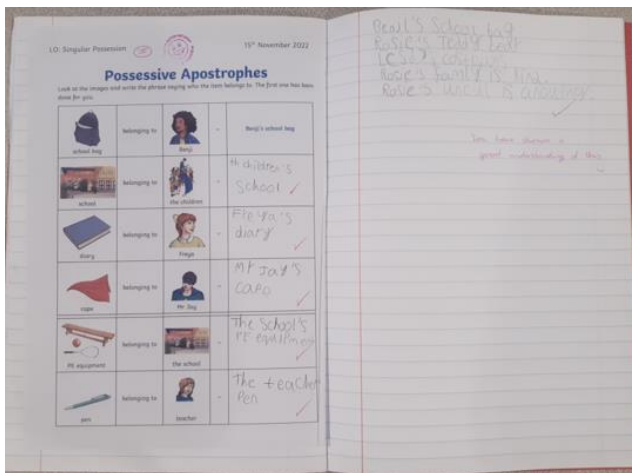 LO: Singular Possession
15th November 2022
Possessive Apostrophes
Look at the images and write the phrase saying who the item belongs to. The first one has been
done for you.
school bag
belonging to
Benji
=
Benji's school bag
school
belonging to
the children
=
th children's
School
diary
belonging to
Freya
=
Freya's
diary
cape
belonging to
=
Mr Jay's
Cape
PE equipment
belonging to
the school
=
The School's
PE
pen
belonging to
teacher
=
The teacher
Pen
School bag
Rosie's
Rosie's family is
Rosie's is
You have shown a
great understanding of this